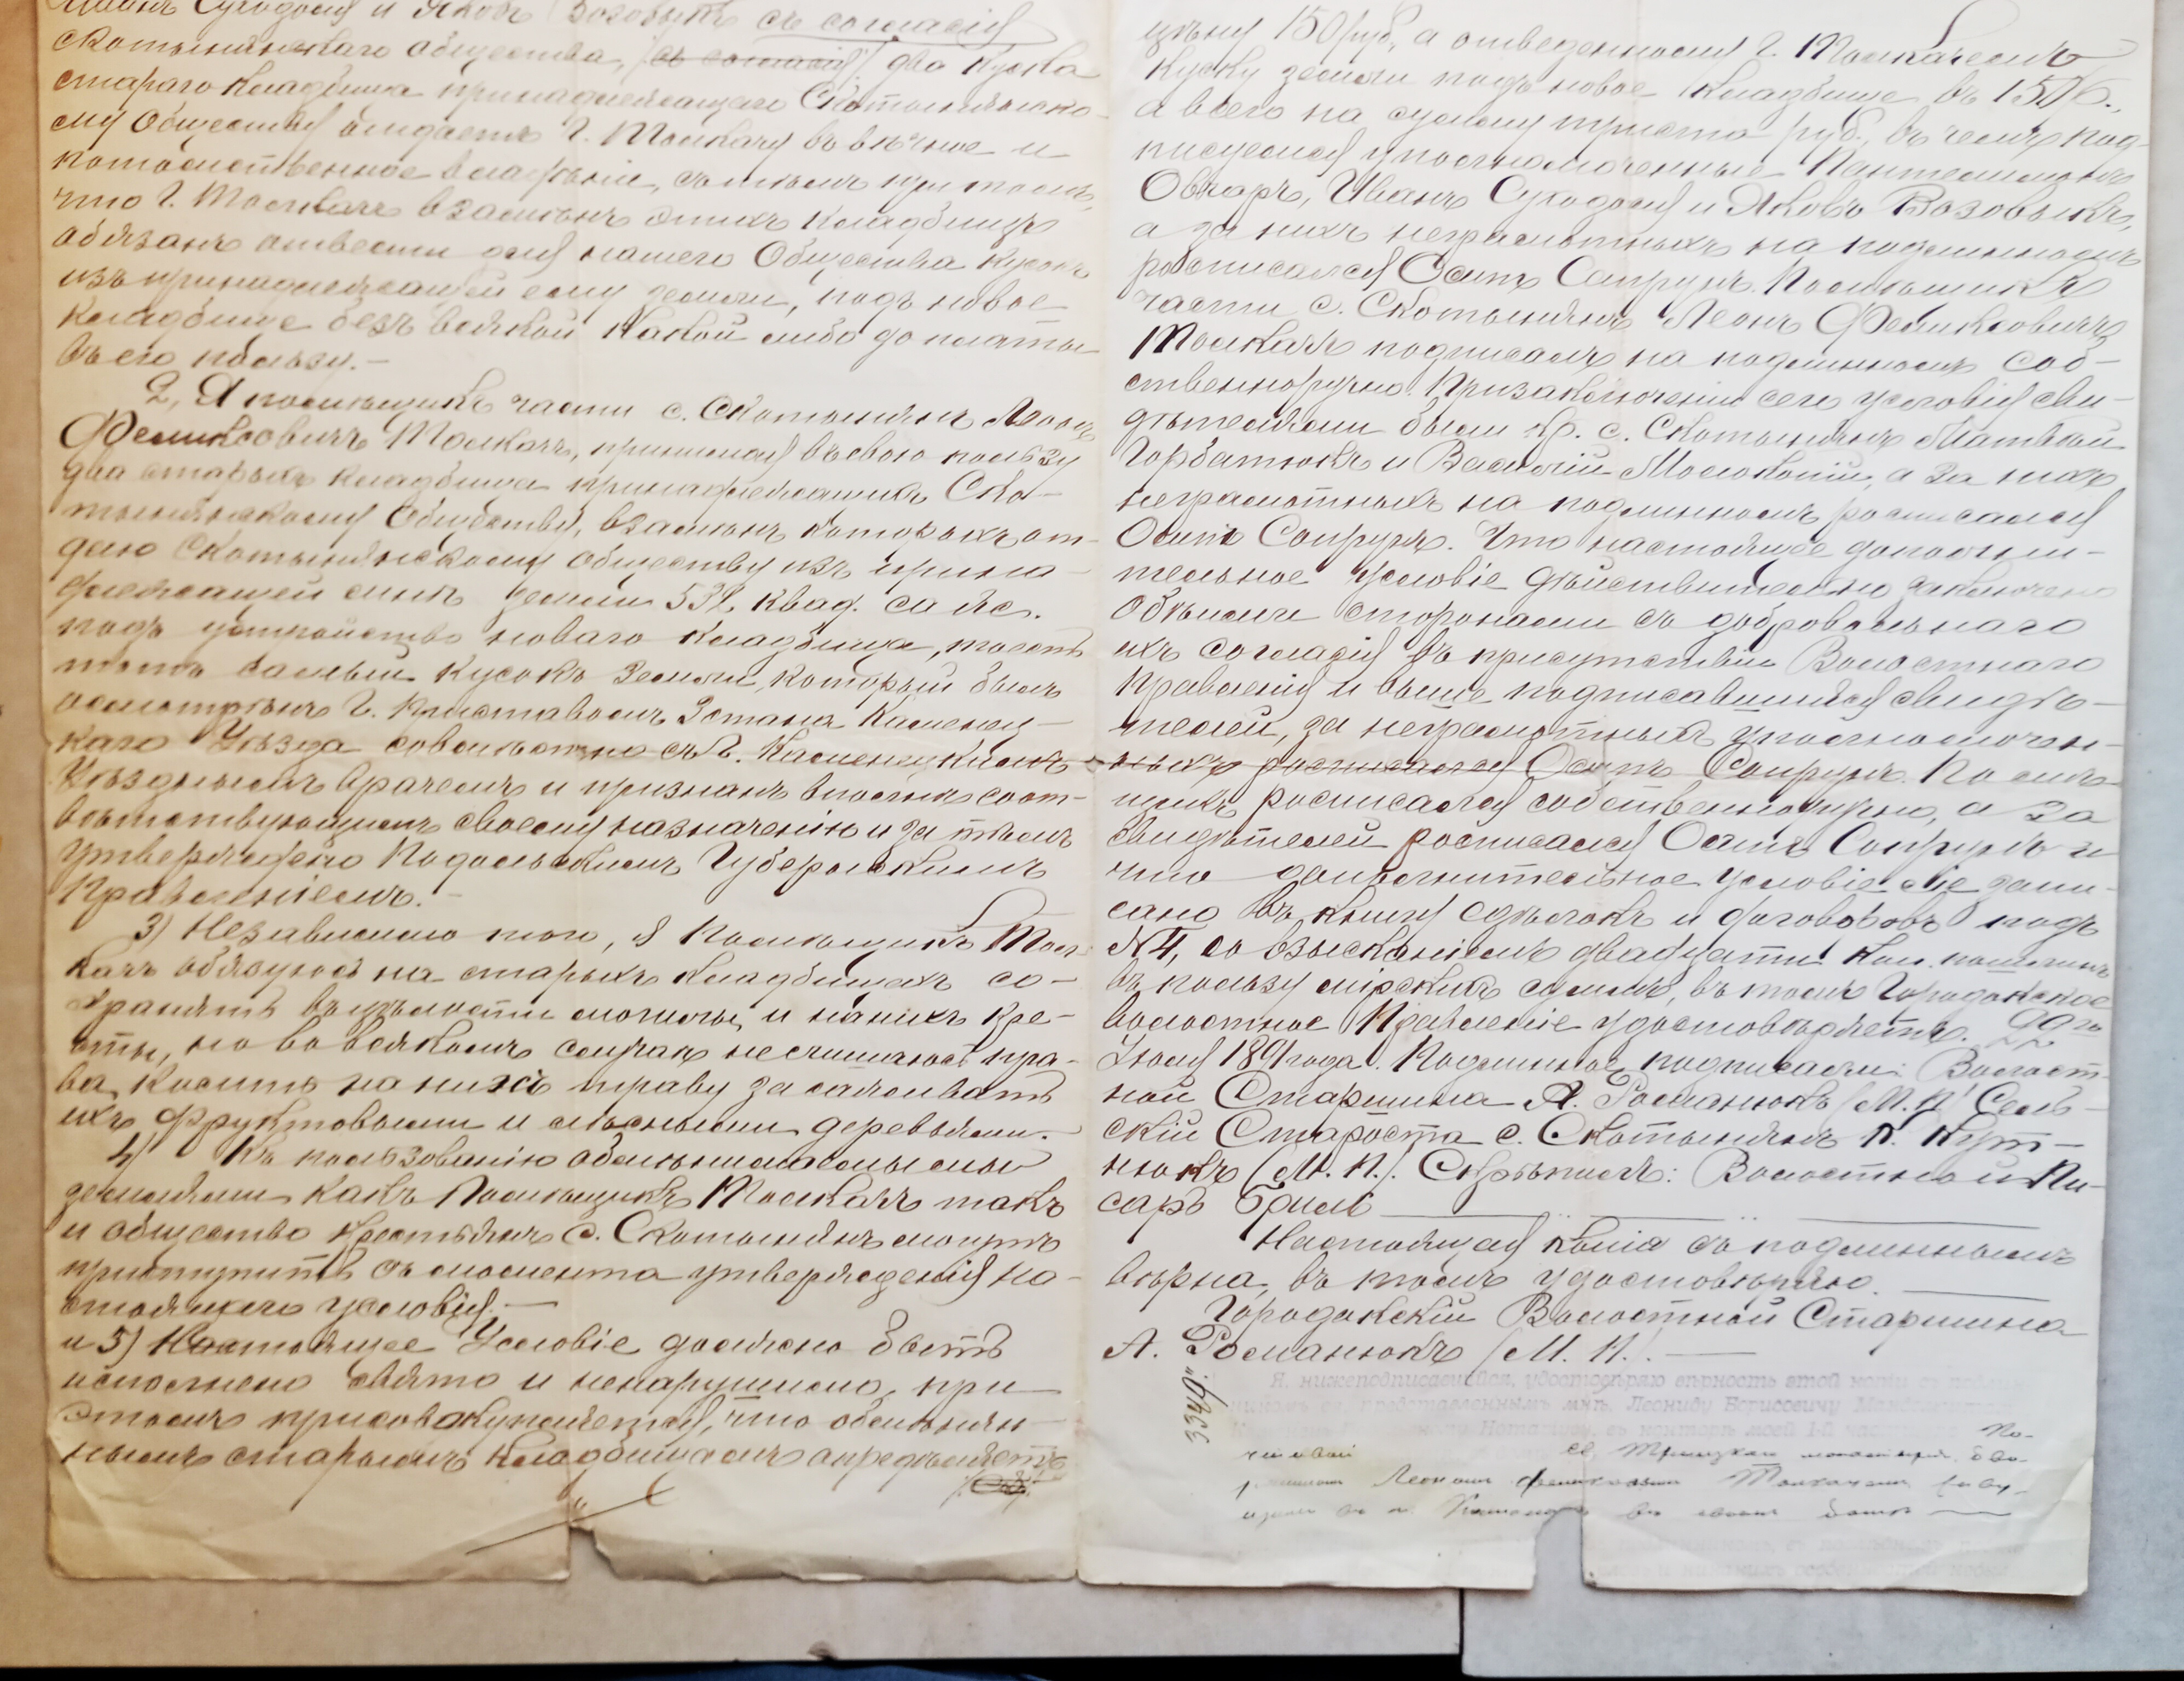 Иванъ Суходоля и Яковъ Возовыкъ съ согласія
скотынянскаго общества, /съ согласія/ два куска
стараго кладбища принадлежащаго Скотынянско-
му Обществу отдаетъ Г. Толкачу въ вѣчное и
потомственное владѣніе, съ тѣмъ при томъ,
что Г. Толкачъ взамѣнъ этихъ кладбищъ
обязанъ отвести для нашего Общества кусокъ
изъ принадлежащей ему земли, подъ новое
кладбище безъ всякой какой либо доплаты
въ его пользу. —
2, Я помѣщикъ части с. Скотынянъ Леонъ
Феликсовичъ Толкачъ, принимая въ свою пользу
два старыхъ кладбища принадлежащихъ Ско-
тынянскому Обществу, взамѣнъ которыхъ от-
даю Скотынянскому обществу изъ прина-
длежащей мнѣ земли 532 квад. саж.
подъ устройство новаго кладбища, тоесть
тотъ самый кусокъ земли, который былъ
осмотрѣнъ Г. Приставомъ 3 стана Каменец-
каго Уѣзда совмѣстно съ Г. Каменецкимъ
Уѣзднымъ врачемъ и признанъ вполнѣ соот-
вѣтствующимъ своему назначенію и за тѣмъ
утверждено Подольскимъ Губернскимъ
Правленіемъ. —
3) Независимо того, я помѣщикъ Тол-
качъ обязуюсь на старыхъ кладбищахъ со-
хранять въ цѣлости могилы и на нихъ кре-
сты, но во всякомъ случаѣ не лишаюсь пра-
ва, косить на нихъ траву засаживать
ихъ фруктовыми и лѣсными деревьями.
4) Къ пользованію обмѣниваемыми
землями какъ помѣщикъ Толкачъ такъ
и общество крестьянъ с. Скотынянъ могутъ
приступить съ момента утвержденія на-
стоящаго условія. —
и 5) Настоящее Условіе должно быть
исполнено свято и ненарушимо, при
этомъ присовокупляется, что обмѣнян-
нымъ старымъ кладбищамъ опредѣляетъ
цѣну 150 руб, а отведенному Г. Толкачемъ
куску земли подъ новое кладбище въ 150 р.,
а всего на сумму триста руб. въ чемъ под-
писуемся уполномоченные Пантелимонъ
Овчаръ, Иванъ Суходоля и Яковъ Возовыкъ,
а за нихъ неграмотныхъ на подлинномъ
росписался Осипъ Сопрунъ. Помѣщикъ
части с. Скотынянъ Леонъ Феликсовичъ
Толкачъ подписалъ на подлинномъ соб-
ственноручно. При заключеніи сего условія сви-
дѣтелями были кр. с. Скотынянъ Матвѣй
Горбатюкъ и Василій Молокопій, а за нихъ
неграмотныхъ на подлинномъ росписался
Осипъ Сопрунъ. Что настоящее дополни-
тельное условіе дѣйствительно заключено
обѣими сторонами съ добровольнаго
ихъ согласія въ присутствіи Волостнаго
Правленія и выше подписавшихся свидѣ-
телей, за неграмотныхъ уполномочен-
ныхъ росписался Осипъ Сопрунъ. Помѣ-
щикъ росписался собственноручно, а за
свидѣтелей росписался Осипъ Сопрунъ и
что дополнительное условіе сіе запи-
сано въ книгу сдѣлокъ и договоровъ подъ
№ 4, со взысканіемъ двадцати коп. пошлинъ
въ пользу мірскихъ суммъ, въ томъ Городокское
волостное Правленіе удостовѣряетъ. 22го
Іюля 1891 года. Подлинное подписали: Волост-
ной Старшина А. Романюкъ /М. П./ Сель-
скій Староста с. Скотынянъ К. Кут-
нюкъ /М. П./. Скрѣпилъ: Волостной Пи-
сарь Бриль
Настоящая копія съ подлиннымъ
вѣрна, въ томъ удостовѣряю.
Городокскій Волостной Старшина
А. Романюкъ /М. П./. —
Я, нижеподписавшійся, удостовѣряю вѣрность этой копіи съ
представленнымъ мнѣ, Леониду Борисовичу
Нотаріусу, въ конторѣ моей 1-й части
Леономъ Феликсовымъ Толкачемъ